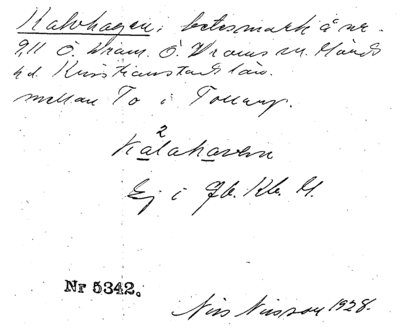 Kalvhagen; betesmark å nr.
9,11 Ö. Vram. Ö. Vrams sn. Gärds
hd. Kristianstads län.
mellan To i Tollarp.
2
kalahaven
Ej i Jb. Kb. G.
Nr 5342.
Nils Nilsson 1928.